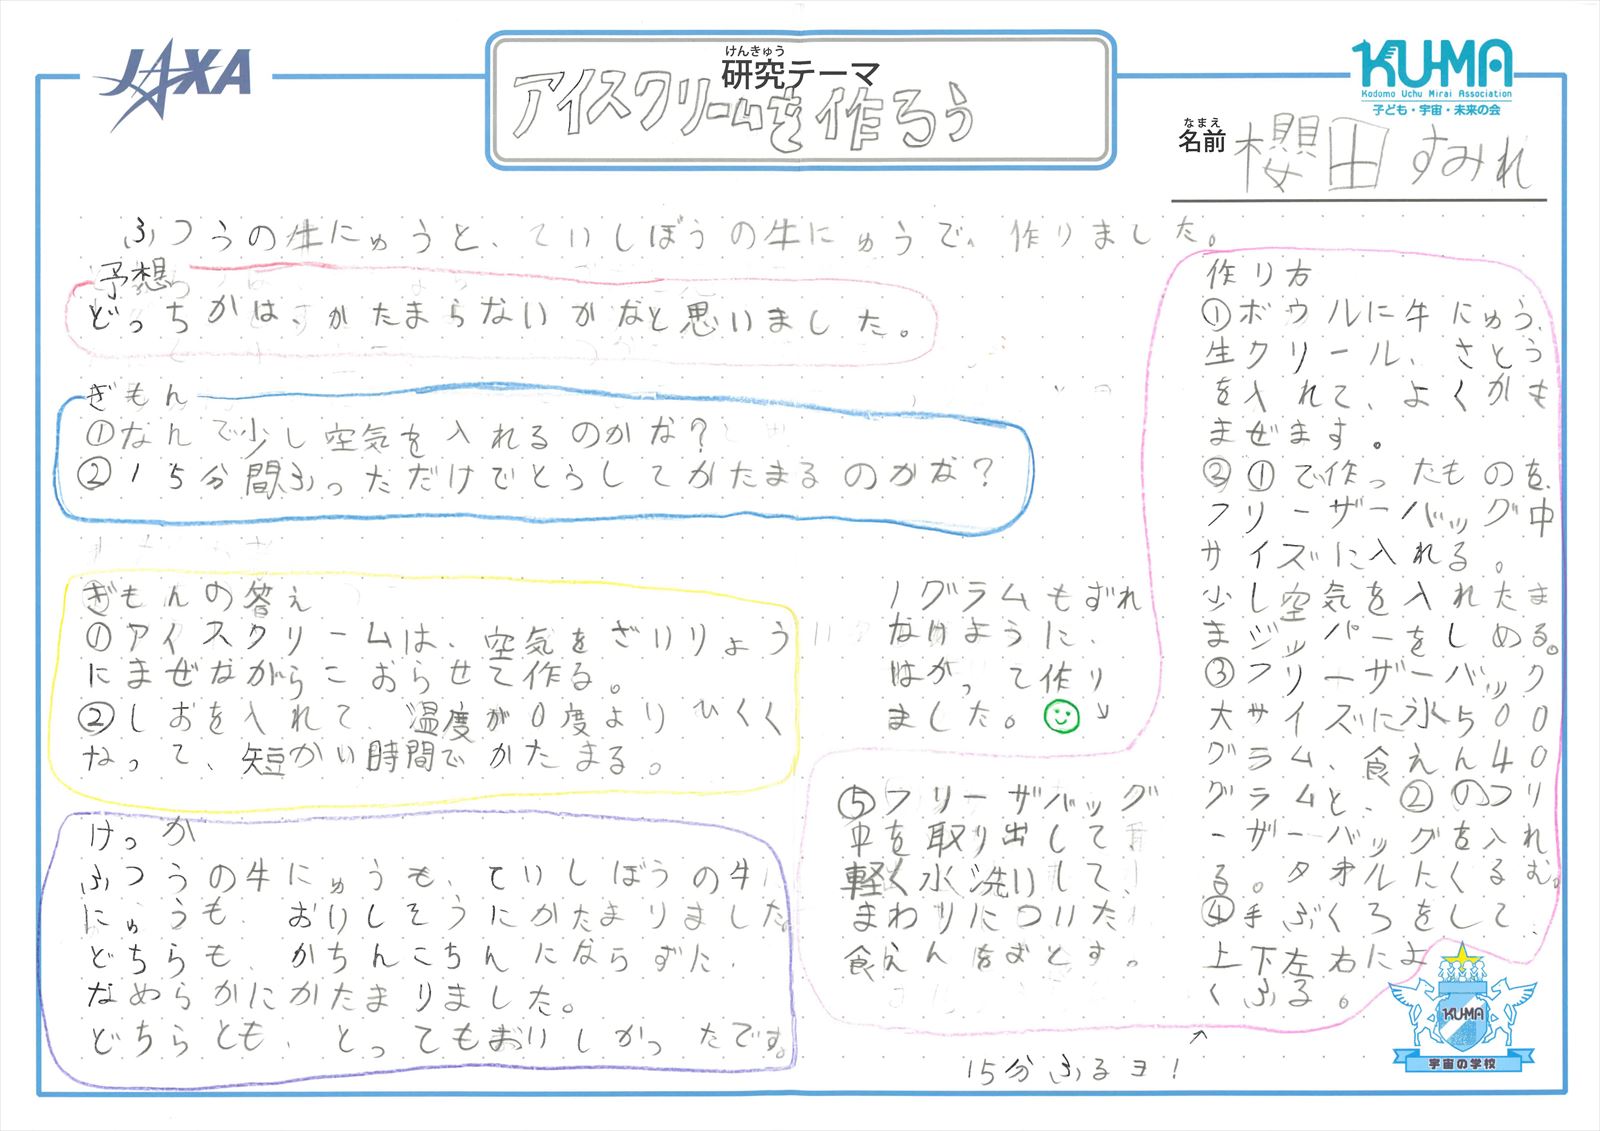 JAXA
けんきゅう
研究テーマ
アイスクリームを作ろう
KUMA
Kodomo Uchu Mirai Association
子ども・宇宙・未来の会
なまえ
名前
櫻田 すみれ
ふつうの牛にゅうと、ていしぼうの牛にゅうで、作りました。
予想
どっちかは、かたまらないかなと思いました。
ぎもん
①なんで少し空気を入れるのかな?
②15分間ふっただけでどうしてかたまるのかな?
ぎもんの答え
①アイスクリームは、空気をざいりょう
にまぜながらこおらせて作る。
②しおを入れて温度が0度よりひくく
なって、短かい時間でかたまる。
けっか
ふつうの牛にゅうも、ていしぼうの牛
にゅうも、おいしそうにかたまりました。
どちらも、かちんこちんにならずた、
なめらかにかたまりました。
どちらとも、とってもおいしかったです。
1グラムもずれ
なけように、
はかって作り
ました。
作り方
①ボウルに牛にゅう、
生クリール、さとう
を入れて、よくかも
まぜます。
②①で作ったものを、
フリーザーバッグ中
サイズに入れる。
少し空気を入れたま
まジッパーをしめる。
③フリーザーバック
大サイズに氷500
グラム、食えん40
グラムと、②のフリ
ーザーバッグを入れ
る。タオルたくるむ。
④手ぶくろをして、
上下左右によ
くふる。
15分ふるヨ!
⑤フリーザバッグ
中を取り出して
軽く水洗いして、
まわりについた
食えんをおとす。
KUMA
宇宙の学校